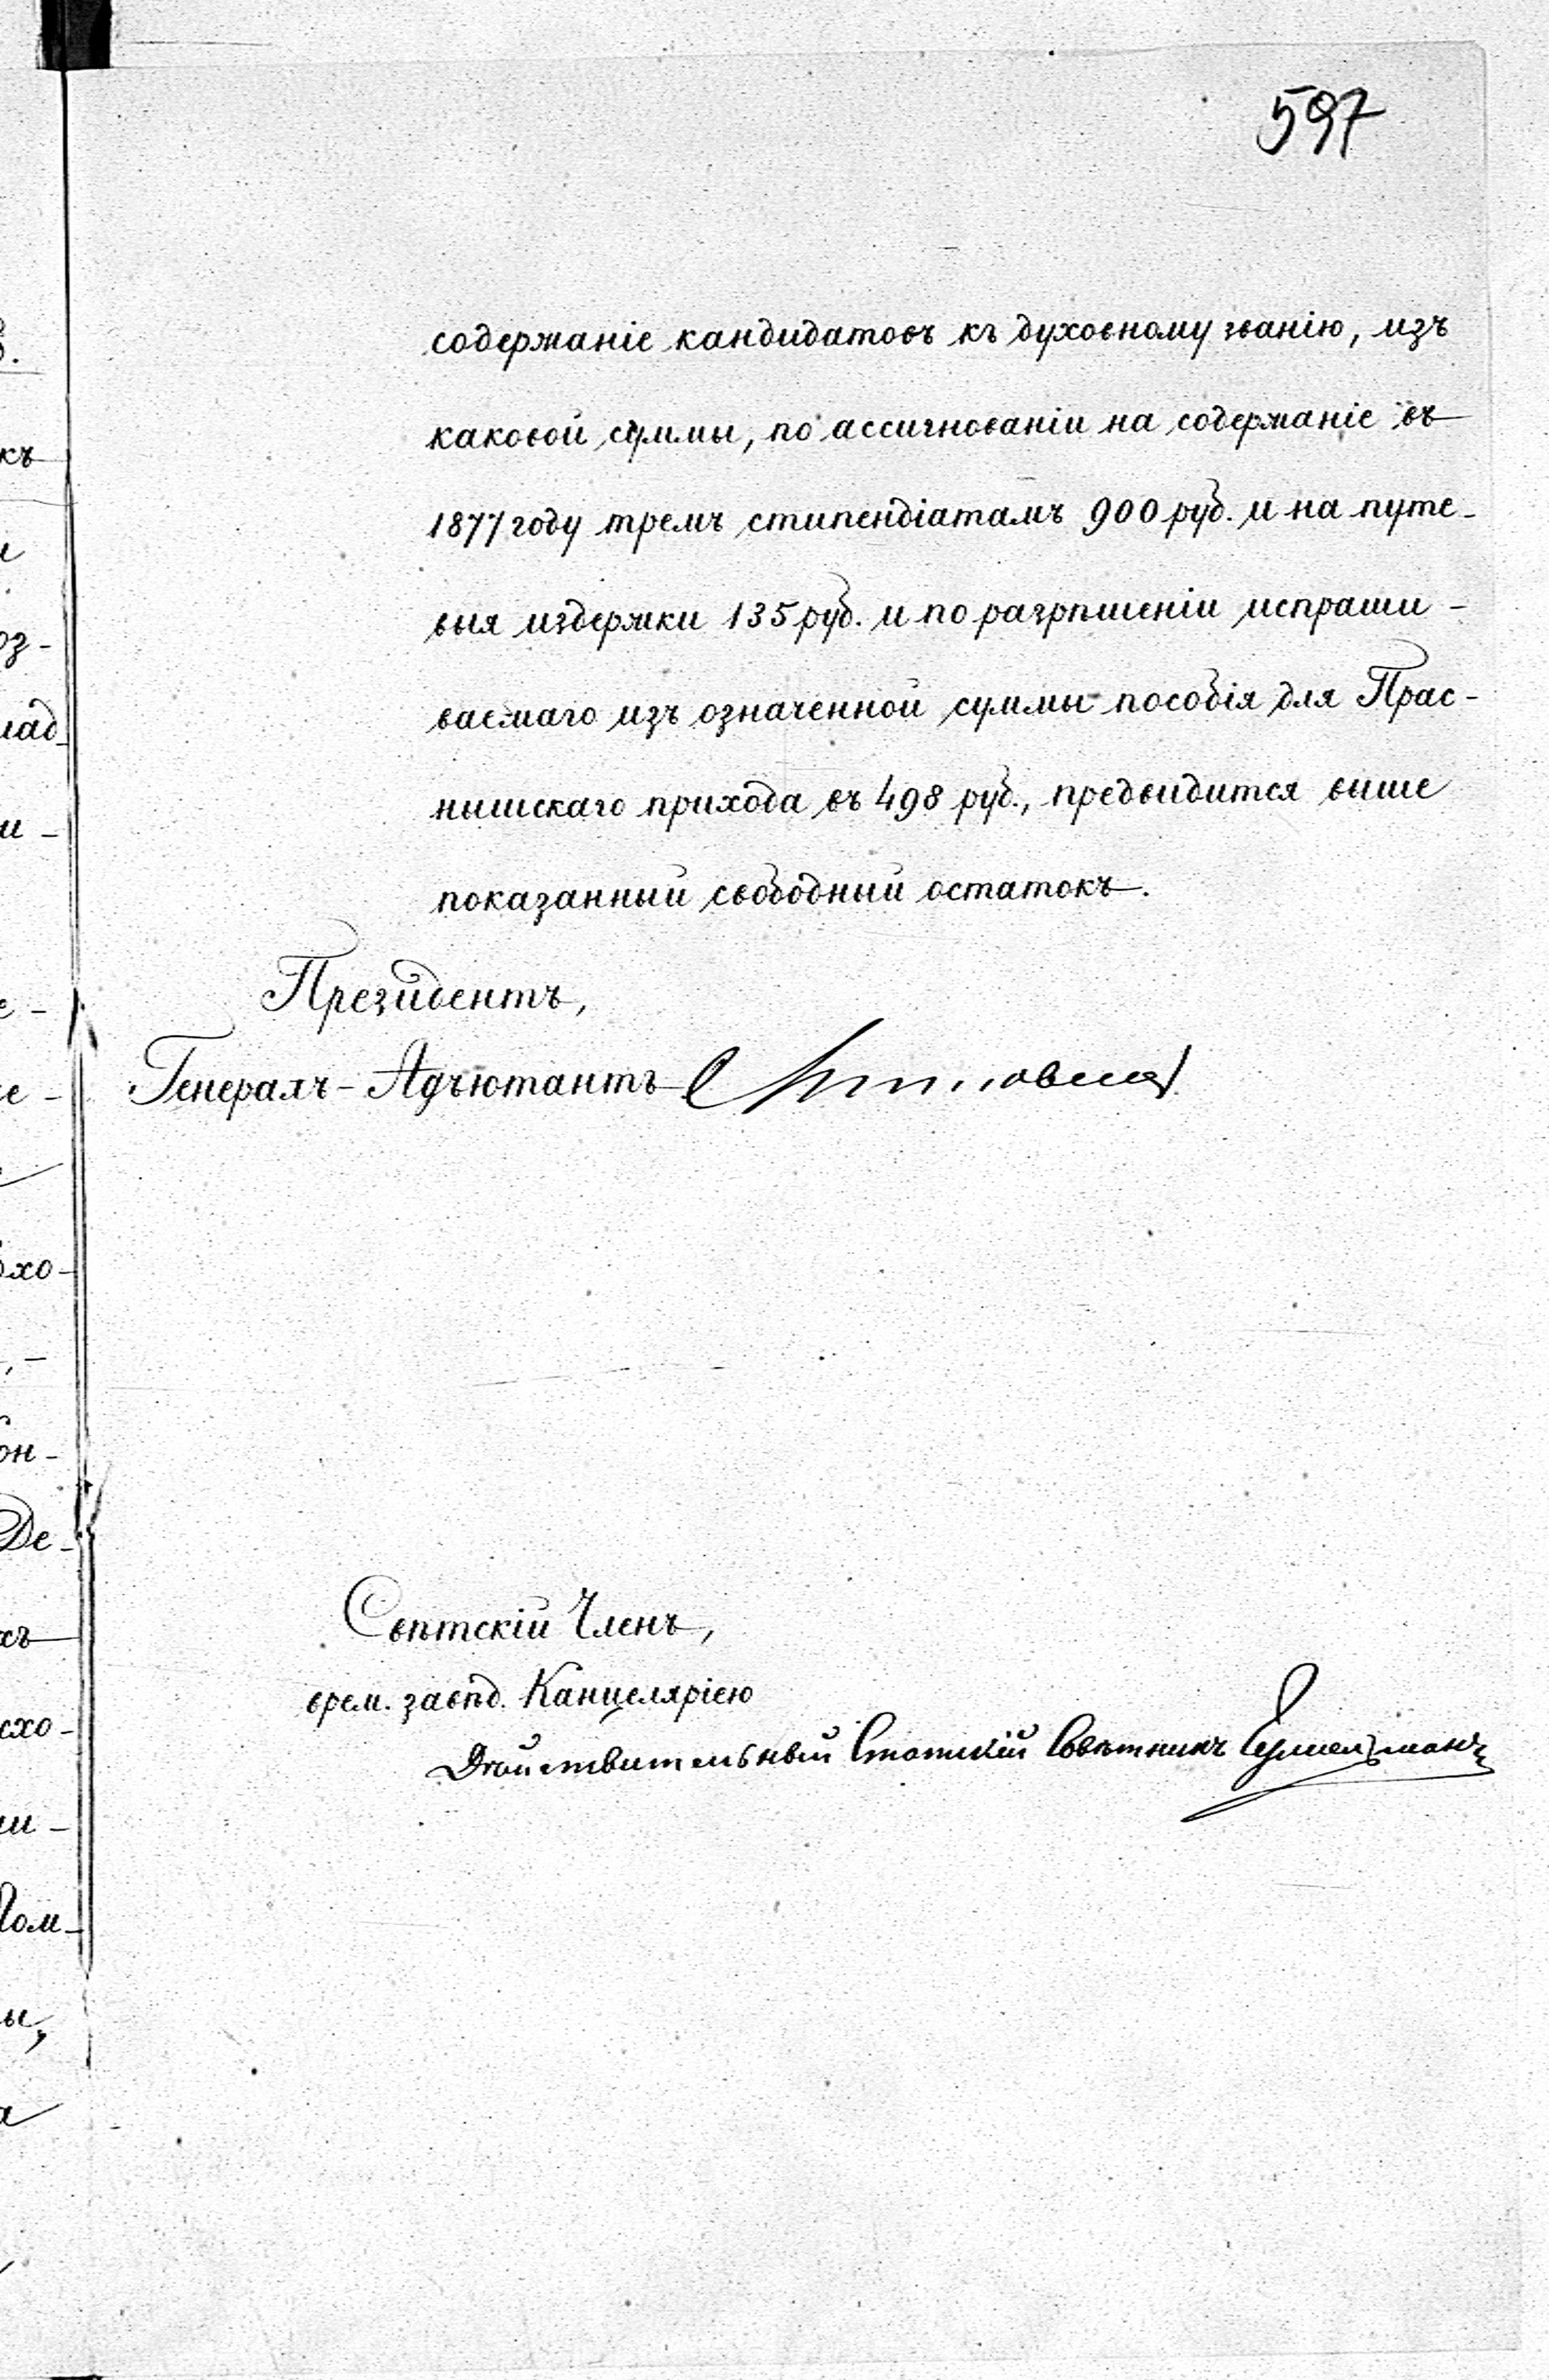 597
содержаніе кандидатовъ къ духовному званію, изъ
каковой суммы, по ассигнованіи на содержаніе въ
1877 году тремъ стипендіатамъ 900 руб. и на путе-
выя издержки 135 руб. и по разрѣшеніи испраши-
ваемаго изъ означенной суммы пособія для Прас-
нышскаго прихода въ 498 руб., предвидится выше
показанный свободный остатокъ.
Президентъ,
Генералъ-Адъютантъ
Свѣтскій Членъ,
врем. завѣд. Канцеляріею
Дѣйствительный Статскій Совѣтникъ